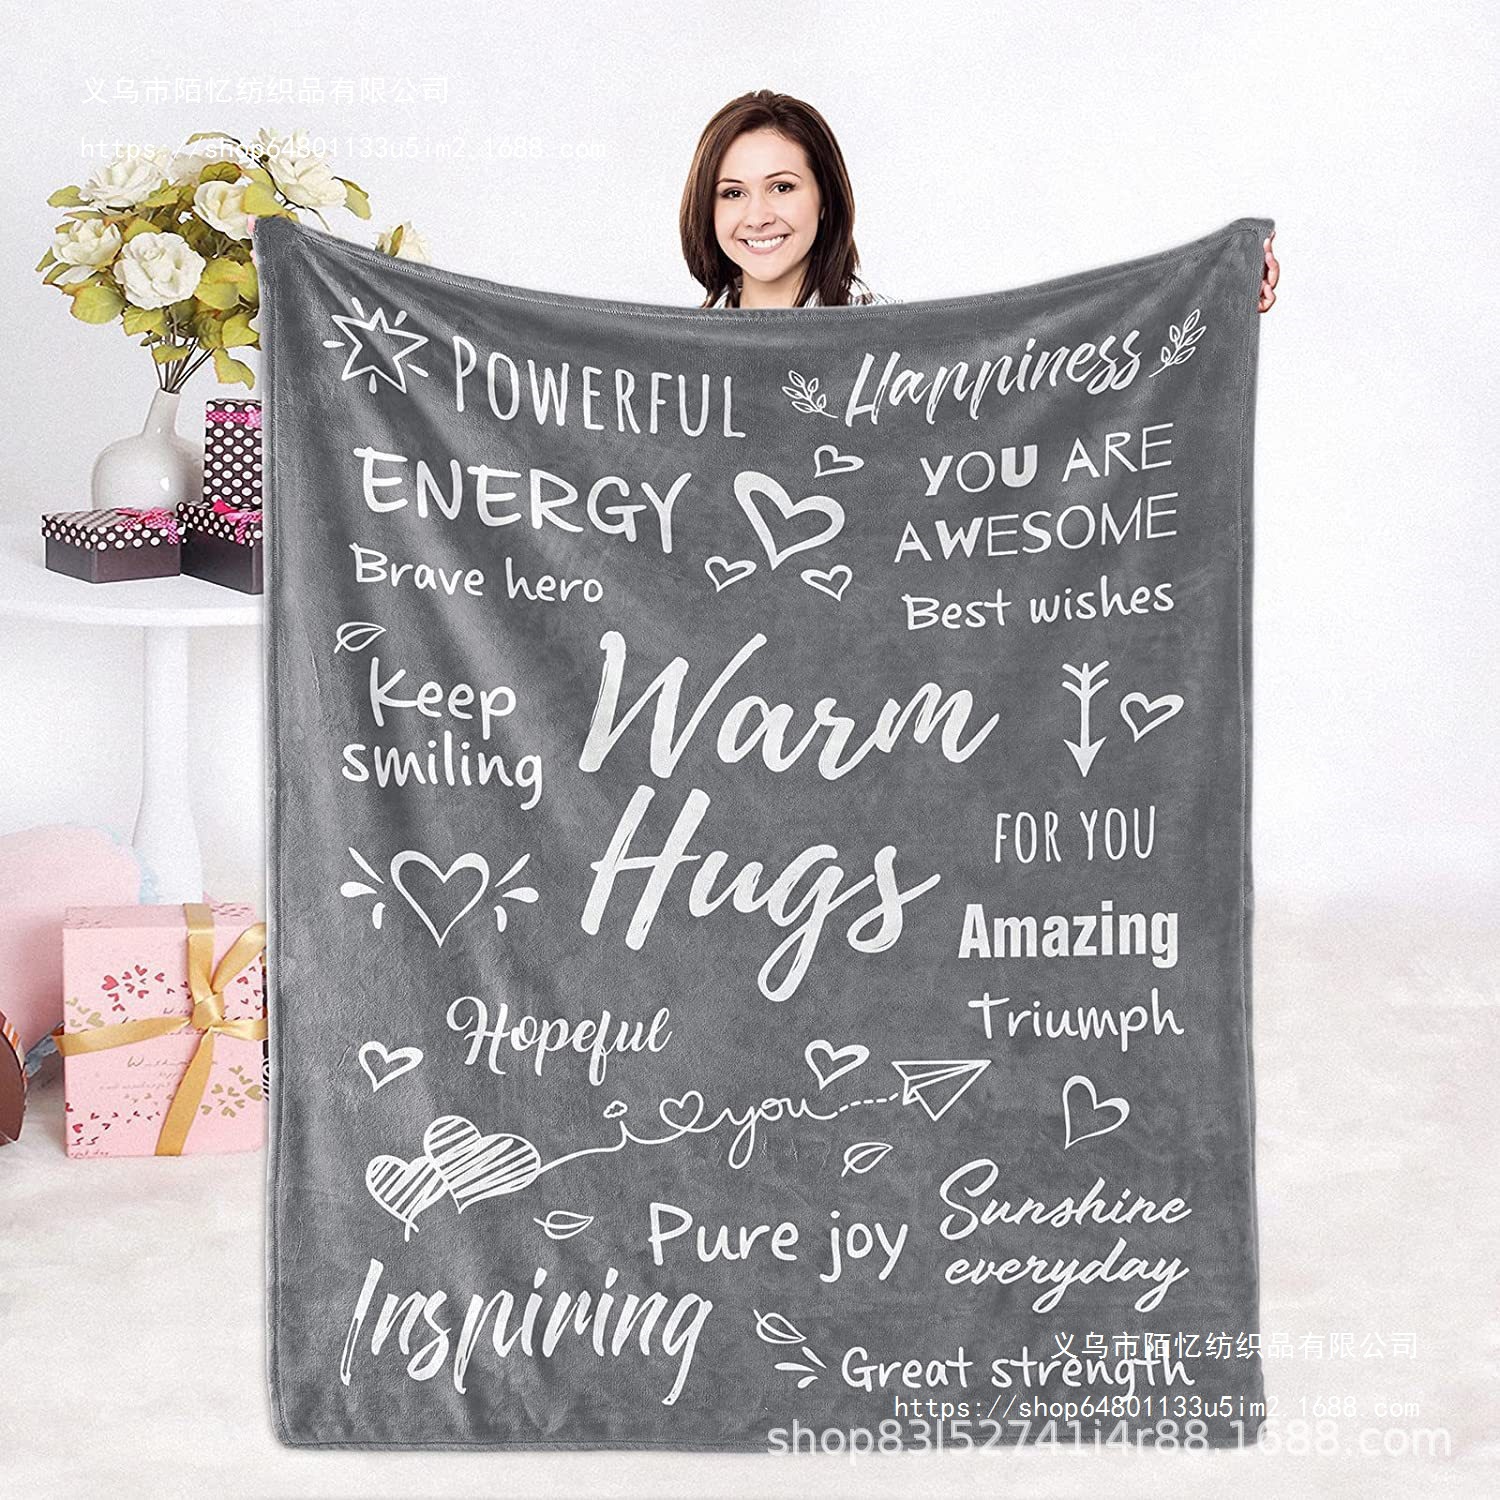 义乌市陌忆纺织品有限公司
https://shop64801133u5im2.1688.com
POWERFUL
Happiness
ENERGY
YOU ARE
AWESOME
Brave hero
Best wishes
Keep
smiling
Warm
Hugs
FOR YOU
Amazing
Triumph
Hopeful
i you
Pure joy
Sunshine
everyday
Inspiring
Great strength
义乌市陌忆纺织品有限公司
https://shop64801133u5im2.1688.com
shop83l52741i4r88.1688.com